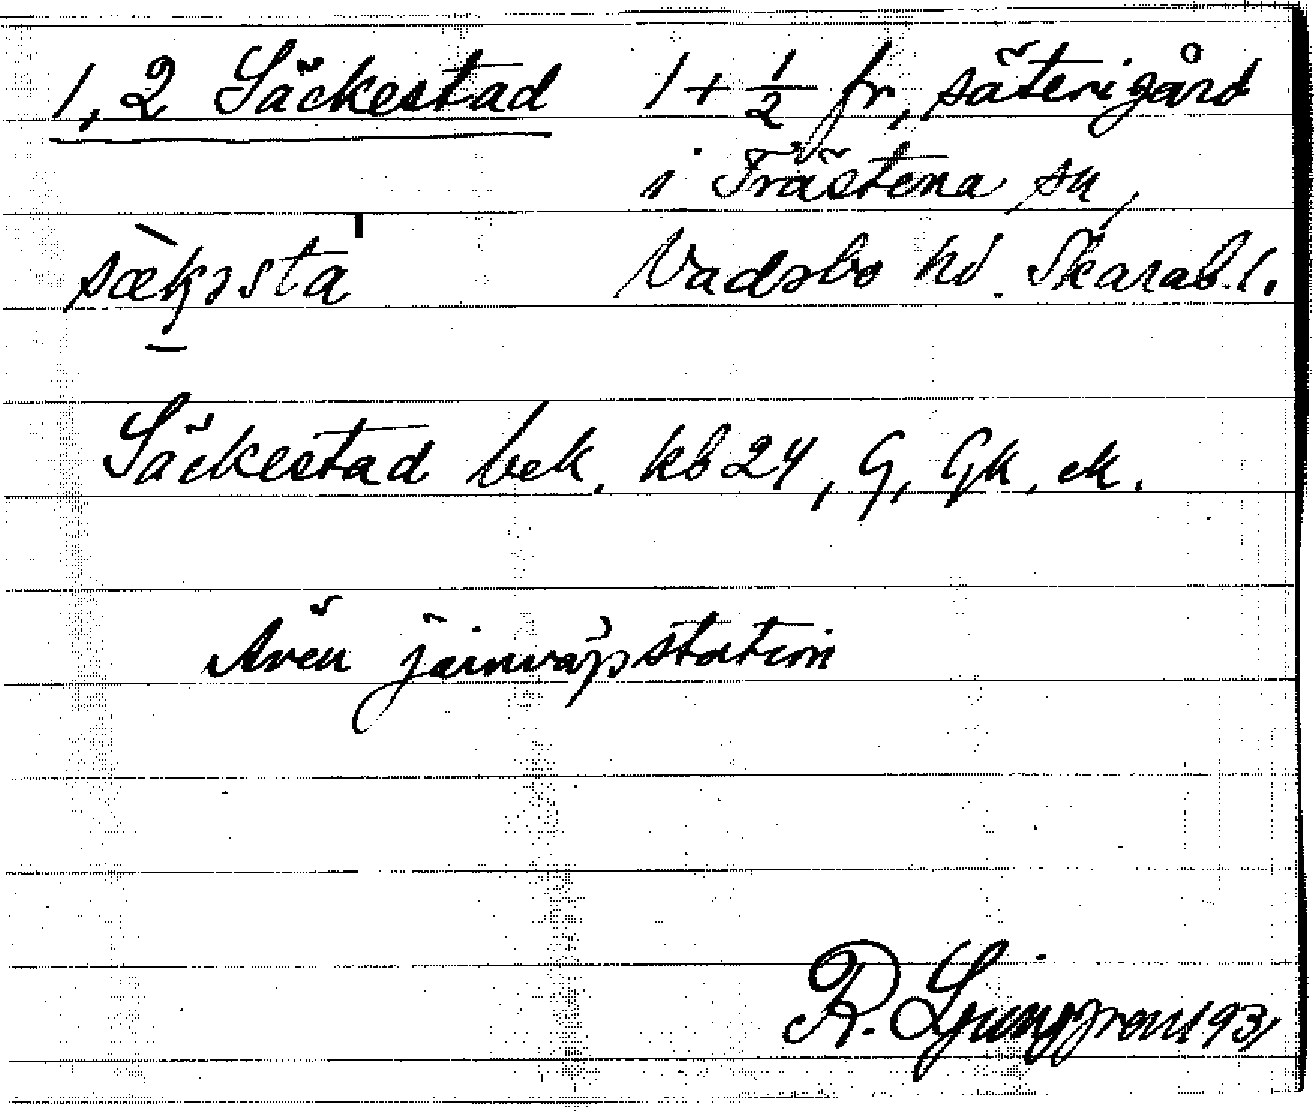 1, 2 Säckestad 1 + 1/2 fr, säterigård
i Trästena sn,
sækɿsta Vadsbo hd. Skarab. l.
Säckestad bek. kb 24, G, Gk, ek.
Även järnvägsstation
R. Ljunggren 1931